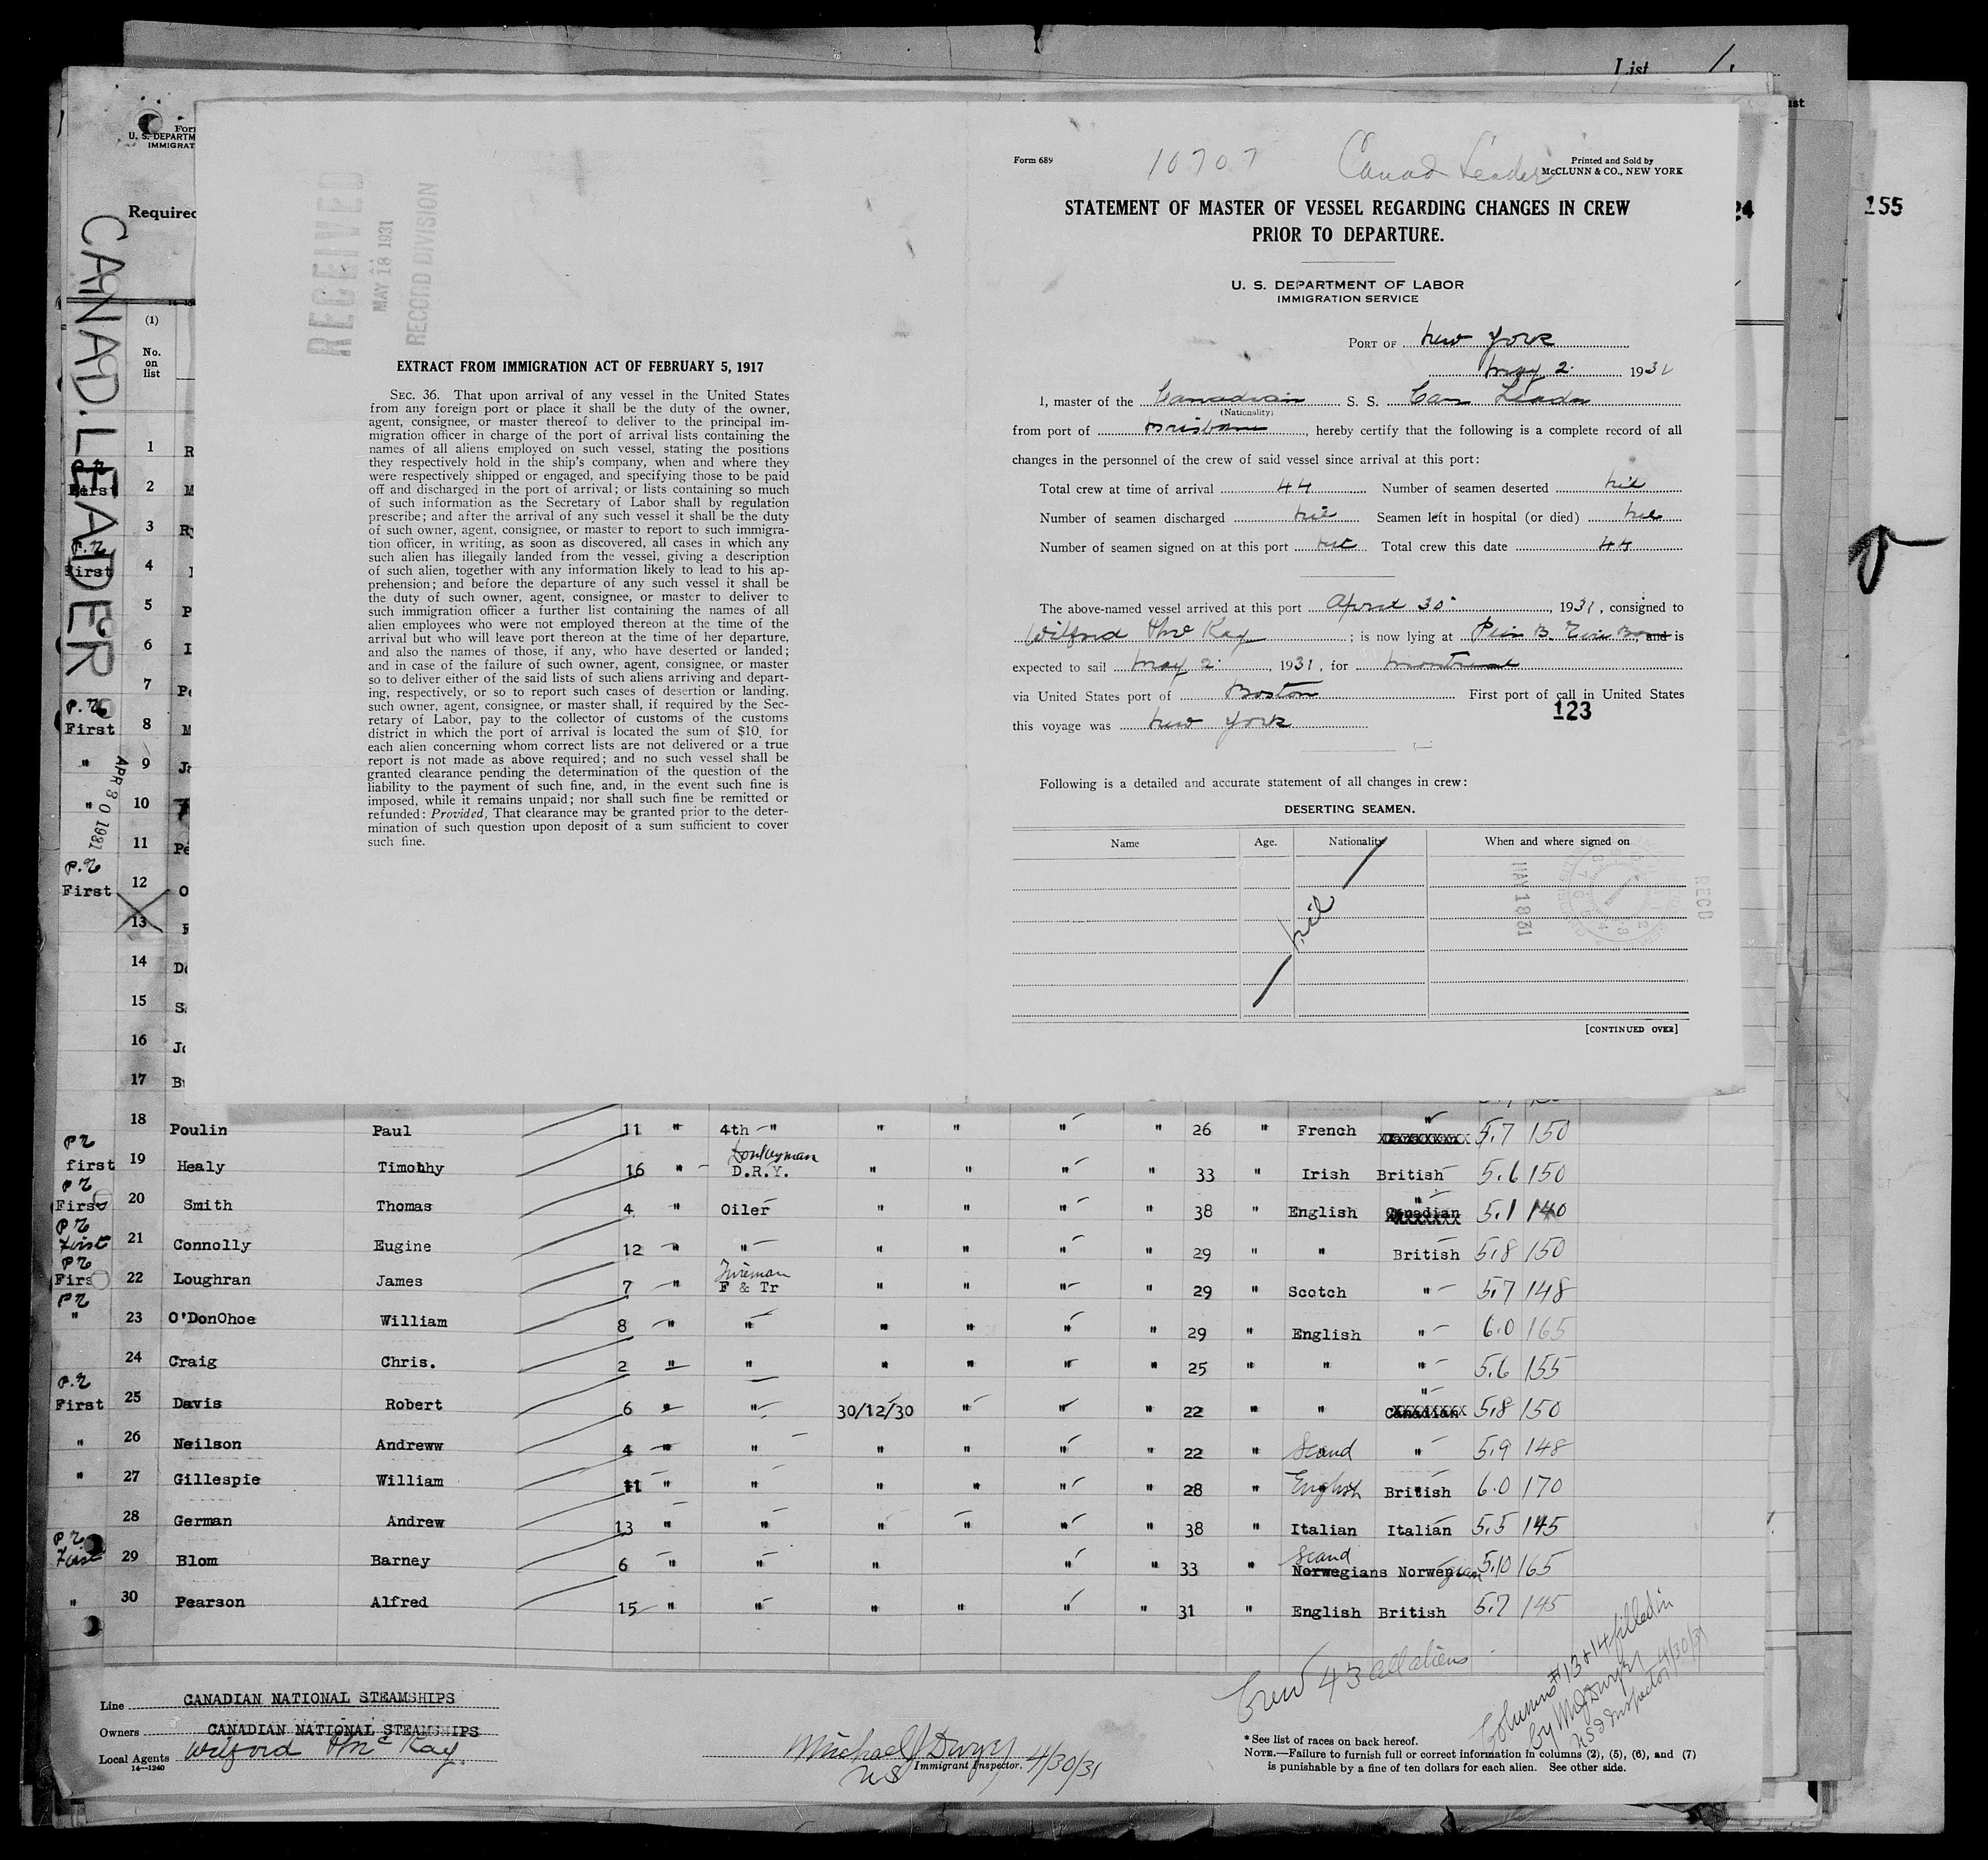 List 1.
ust
155
24
Form
U. S. DEPARTM
IMMIGRAT
Required
CANAD. LEADER
APR 30 1931
RECEIVED
MAY 18 1931
RECORD DIVISION
EXTRACT FROM IMMIGRATION ACT OF FEBRUARY 5, 1917
SEC. 36. That upon arrival of any vessel in the United States
from any foreign port or place it shall be the duty of the owner,
agent, consignee, or master thereof to deliver to the principal im-
migration officer in charge of the port of arrival lists containing the
names of all aliens employed on such vessel, stating the positions
they respectively hold in the ship's company, when and where they
were respectively shipped or engaged, and specifying those to be paid
off and discharged in the port of arrival; or lists containing so much
of such information as the Secretary of Labor shall by regulation
prescribe; and after the arrival of any such vessel it shall be the duty
of such owner, agent, consignee, or master to report to such immigra-
tion officer, in writing, as soon as discovered, all cases in which any
such alien has illegally landed from the vessel, giving a description
of such alien, together with any information likely to lead to his ap-
prehension; and before the departure of any such vessel it shall be
the duty of such owner, agent, consignee, or master to deliver to
such immigration officer a further list containing the names of all
alien employees who were not employed thereon at the time of the
arrival but who will leave port thereon at the time of her departure,
and also the names of those, if any, who have deserted or landed;
and in case of the failure of such owner, agent, consignee, or master
so to deliver either of the said lists of such aliens arriving and depart-
ing, respectively, or so to report such cases of desertion or landing,
such owner, agent, consignee, or master shall, if required by the Sec-
retary of Labor, pay to the collector of customs of the customs
district in which the port of arrival is located the sum of $10 for
each alien concerning whom correct lists are not delivered or a true
report is not made as above required; and no such vessel shall be
granted clearance pending the determination of the question of the
liability to the payment of such fine, and, in the event such fine is
imposed, while it remains unpaid; nor shall such fine be remitted or
refunded: Provided, That clearance may be granted prior to the deter-
mination of such question upon deposit of a sum sufficient to cover
such fine.
Form 689 10707 Canad Leader Printed and Sold by
McCLUNN & CO., NEW YORK
STATEMENT OF MASTER OF VESSEL REGARDING CHANGES IN CREW
PRIOR TO DEPARTURE.
U. S. DEPARTMENT OF LABOR
IMMIGRATION SERVICE
PORT OF New York
May 2. 1931
I, master of the Canadian S. S. Can Leader
(Nationality)
from port of Brisbane, hereby certify that the following is a complete record of all
changes in the personnel of the crew of said vessel since arrival at this port:
Total crew at time of arrival 44 Number of seamen deserted nil
Number of seamen discharged nil Seamen left in hospital (or died) nil
Number of seamen signed on at this port nil Total crew this date 44
The above-named vessel arrived at this port April 30, 1931, consigned to
Wilford & McKay; is now lying at Pier B. Erie Ba and is
expected to sail May 2, 1931, for Montreal
via United States port of Boston First port of call in United States
this voyage was New York 123
Following is a detailed and accurate statement of all changes in crew:
DESERTING SEAMEN.
Name Age. Nationality When and where signed on
nil
MAY 18 31
RECD
[CONTINUED OVER]
(1)
No.
on
list
1 R
P.R. First 2 M
3 Ry
P.R. First 4
5 P
6 I
7 Pe
P.R. First 8 M
" 9 Ja
" 10
11 Pe
P.R. First 12 O
13 F
14 Do
15 S
16 Jo
17 Br
18 Poulin Paul 11 " 4th " " " " " 26 " French " 5.7 150
PR first 19 Healy Timothy 16 " Donkeyman D.R.Y. " " " " 33 " Irish British 5.6 150
PR First 20 Smith Thomas 4 " Oiler " " " " 38 " English " Canadian 5.1 140
PR First 21 Connolly Eugine 12 " " " " " " 29 " " British 5.8 150
PR First 22 Loughran James 7 " Fireman F & Tr " " " " 29 " Scotch " 5.7 148
PR " 23 O'DonOhoe William 8 " " " " " " 29 " English " 6.0 165
24 Craig Chris. 2 " " " " " " 25 " " " 5.6 155
P.R. First 25 Davis Robert 6 " " 30/12/30 " " " 22 " " " Canadian 5.8 150
" 26 Neilson Andreww 4 " " " " " " 22 " Scand " 5.9 148
" 27 Gillespie William 11 " " " " " " 28 " English British 6.0 170
28 German Andrew 13 " " " " " " 38 " Italian Italian 5.5 145
P.R. First 29 Blom Barney 6 " " " " " 33 " Scand Norwegians Norwegian 5.10 165
" 30 Pearson Alfred 15 " " " " " " 31 " English British 5.7 145
Crew 43 all aliens
Columns #13 & 14 filled in
by M J Dwyer
US Inspector 4/30/31
Line CANADIAN NATIONAL STEAMSHIPS
Owners CANADIAN NATIONAL STEAMSHIPS
Local Agents Wilford & McKay.
14—1240
Michael J Dwyer 4/30/31
US Immigrant Inspector.
* See list of races on back hereof.
NOTE.—Failure to furnish full or correct information in columns (2), (5), (6), and (7)
is punishable by a fine of ten dollars for each alien. See other side.